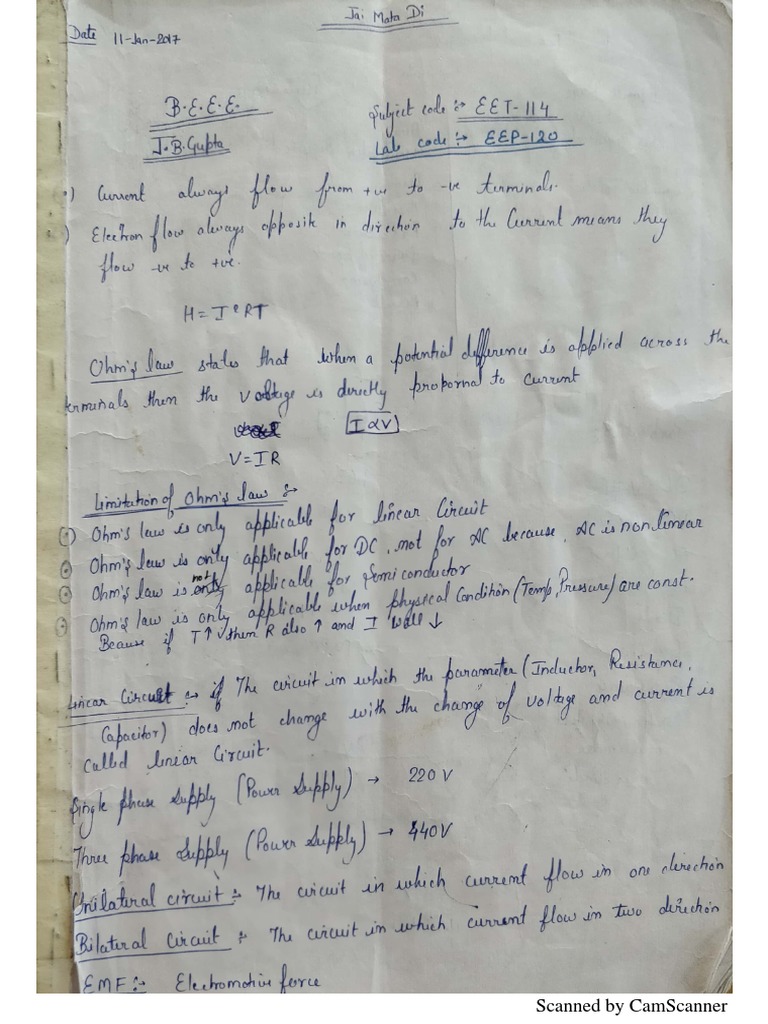 Jai Mata Di
Date 11-Jan-2017
B.E.E.E. Subject code :- EET-114
J.B. Gupta Lab code :- EEP-120
) Current always flow from +ve to -ve terminals.
) Electron flow always opposite in direction to the Current means they
flow -ve to +ve.
H = I² RT
Ohm's law states that when a potential difference is applied across the
terminals then the voltage is directly propornal to current
I ∝ V
V = IR
Limitation of Ohm's law :-
Ohm's law is only applicable for linear Circuit
Ohm's law is only applicable for DC, not for AC because, AC is non linear
Ohm's law is not applicable for Semiconductor
Ohm's law is only applicable when physical Condition (Temp, Pressure) are const.
Becaue if T↑ then R also ↑ and I will ↓
Linear Circuit :- if The circuit in which the parameter (Inductor, Resistance,
Capacitor) does not change with the change of voltage and current is
called linear Circuit.
Single phase Supply (Power Supply) → 220 V
Three phase Supply (Power Supply) → 440V
Unilateral circuit :- The circuit in which current flow in one direction
Bilateral Circuit :- The circuit in which current flow in two direction
EMF :- Electromotive force
Scanned by CamScanner